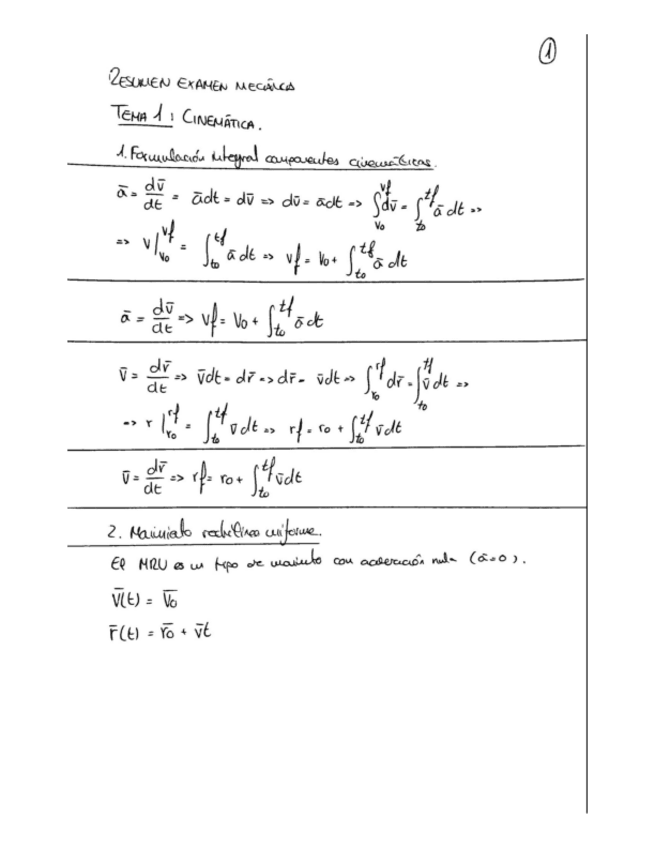 1
RESUMEN EXAMEN MECÁNICA
TEMA 1: CINEMÁTICA.
1. Formulación integral componentes cinemáticas.
ā = dv̄/dt = ādt = dv̄ => dv̄ = ādt => ∫_{v0}^{vf} dv̄ = ∫_{t0}^{tf} ā dt =>
=> v|_{v0}^{vf} = ∫_{t0}^{tf} ā dt => vf = v0 + ∫_{t0}^{tf} ā dt
ā = dv̄/dt => vf = v0 + ∫_{t0}^{tf} ā dt
v̄ = dr̄/dt => v̄dt = dr̄ => dr̄ = v̄dt => ∫_{r0}^{rf} dr̄ = ∫_{t0}^{tf} v̄ dt =>
=> r|_{r0}^{rf} = ∫_{t0}^{tf} v̄ dt => rf = r0 + ∫_{t0}^{tf} v̄ dt
v̄ = dr̄/dt => rf = r0 + ∫_{t0}^{tf} v̄dt
2. Movimiento rectilíneo uniforme.
El MRU es un tipo de movimiento con aceleración nula (ā=0).
v̄(t) = v̄0
r̄(t) = r̄0 + v̄t